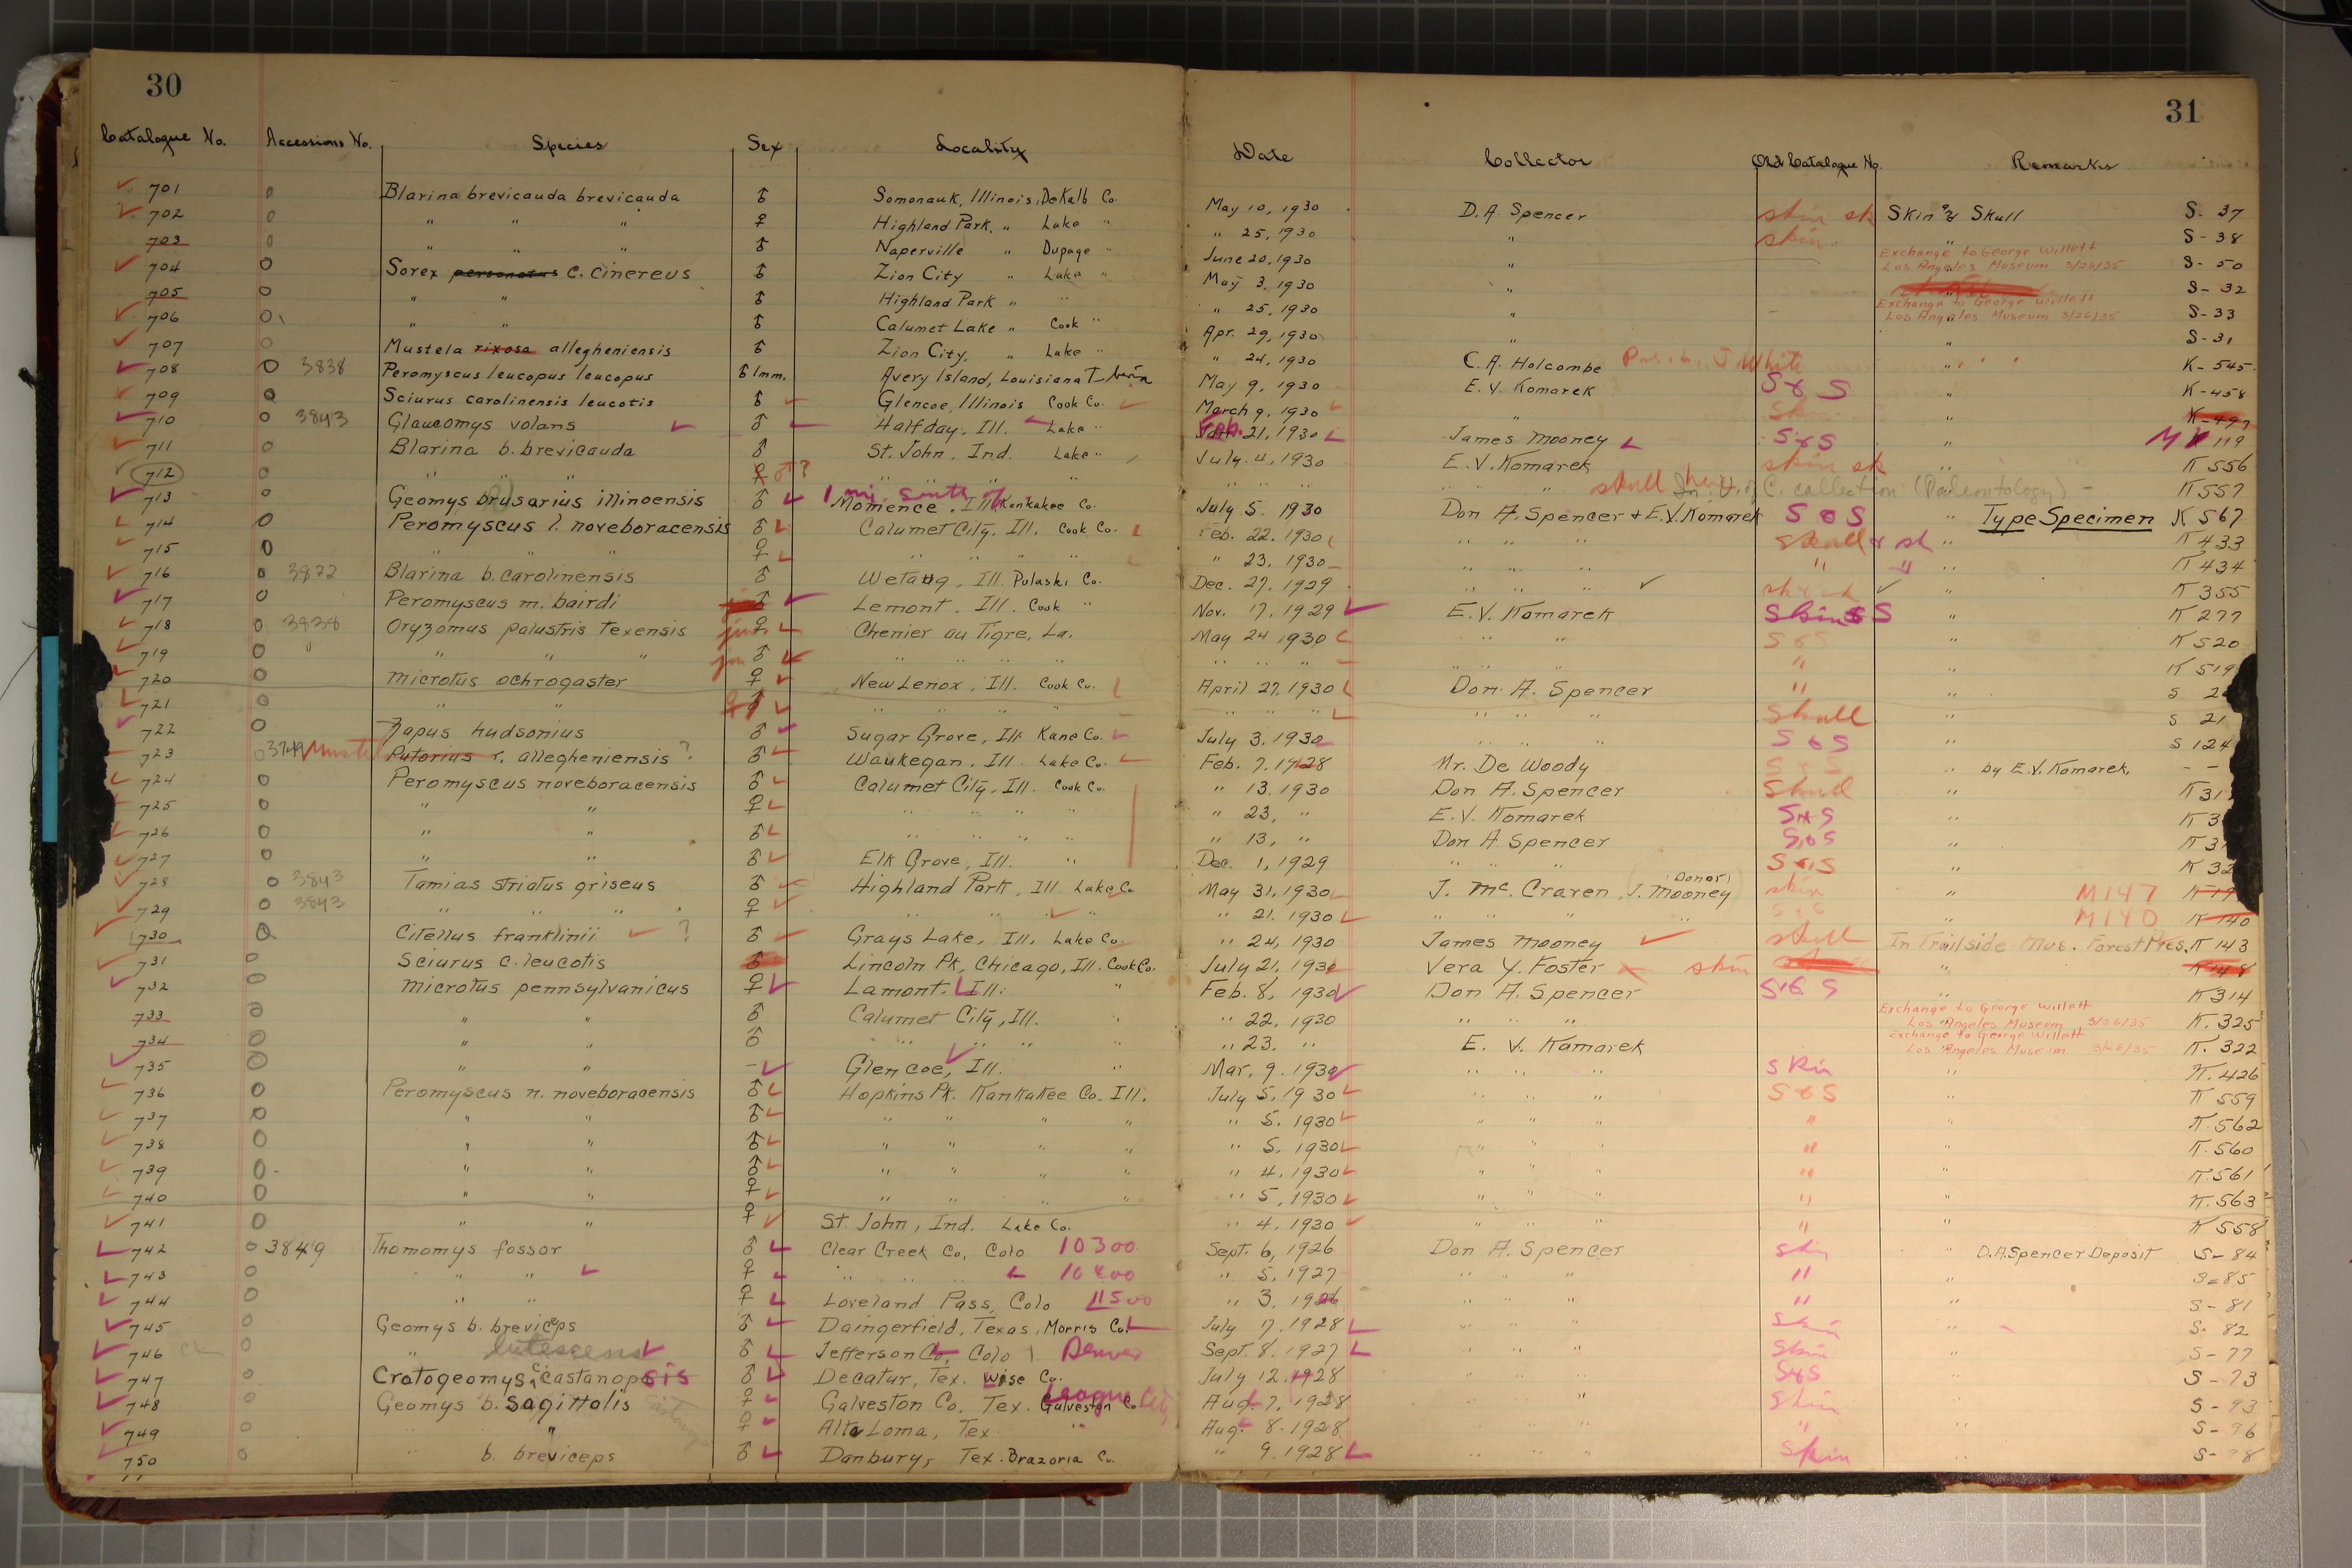 30
31
Catalogue No. Accessions No. Species Sex Locality Date Collector Old Catalogue No. Remarks
701 O Blarina brevicauda brevicauda ♂ Somonauk, Illinois, DeKalb Co. May 10, 1930 D.A. Spencer skin sk Skin & Skull S-37
702 O " " " ♀ Highland Park, " Lake " " 25, 1930 " skin " S-38
703 O " " " ♂ Naperville " Dupage " June 20, 1930 " Exchange to George Willett Los Angeles Museum 3/26/35 S-50
704 O Sorex personatus c. cinereus ♂ Zion City " Lake " May 3, 1930 " S-32
705 O " " ♂ Highland Park " " " 25, 1930 " Exchange to George Willett Los Angeles Museum 3/26/35 S-33
706 O " " ♂ Calumet Lake " Cook " Apr. 29, 1930 " S-31
707 O Mustela rixosa allegheniensis ♂ Zion City, " Lake " " 24, 1930 C.A. Holcombe J White " K-545
708 O 3838 Peromyscus leucopus leucopus ♂ Imm. Avery Island, Louisiana Iberia May 9, 1930 E.V. Komarek S & S " K-458
709 O Sciurus carolinensis leucotis ♂ Glencoe, Illinois Cook Co. March 9, 1930 " " K-497
710 O 3843 Glaucomys volans ♂ Halfday, Ill. Lake " Feb. 21, 1930 James Mooney S & S " M 119
711 O Blarina b. brevicauda ♂ St. John, Ind. Lake " July. 4, 1930 E.V. Komarek skin sk " K 556
712 O " " " ♀ ♂? " " " " " " " " " skull here In U. of C. collection (Paleontology) - K 557
713 O Geomys brusarius illinoensis ♂ 1 mi. south of Momence, Ill. Kankakee Co. July 5. 1930 Don A. Spencer & E.V. Komarek S & S " Type Specimen K 567
714 O Peromyscus l. noveboracensis ♂ Calumet City, Ill. Cook Co. Feb. 22. 1930 " " " skull & sk " K 433
715 O " " " ♀ " " " " " 23, 1930 " " " " " " K 434
716 O 3872 Blarina b. carolinensis ♂ Wetaug, Ill. Pulaski Co. Dec. 27. 1929 " " " K 355
717 O Peromyscus m. bairdi ♂ Lemont, Ill. Cook " Nov. 17. 1929 E.V. Komarek Skin & S " K 277
718 O 3838 Oryzomus palustris texensis juv. ♀ Chenier au Tigre, La. May 24 1930 " " " S & S " K 520
719 O " " " " ♂ " " " " " " " " " " " " K 519
720 O Microtus ochrogaster ♀ New Lenox, Ill. Cook Co. April 27. 1930 Don A. Spencer " " S
721 O " " ♂ " " " " " " " " " " Skull " S 21
722 O Zapus hudsonius ♂ Sugar Grove, Ill. Kane Co. July 3. 1930 " " " S & S " S 124
723 O 3749 Mustela Putorius r. allegheniensis ? ♂ Waukegan, Ill. Lake Co. Feb. 7. 1928 Mr. De Woody S & S " by E.V. Komarek, - -
724 O Peromyscus noveboracensis ♂ Calumet City, Ill. Cook Co. " 13. 1930 Don A. Spencer Skull " K 31
725 O " " ♀ " " " " " 23, " E.V. Komarek S & S " K 3
726 O " " ♂ " " " " " 13, " Don A Spencer S & S " K 3
727 O " " ♂ Elk Grove, Ill. " Dec. 1, 1929 " " " S & S " K 32
728 O 3843 Tamias striatus griseus ♂ Highland Park, Ill. Lake Co May 31, 1930 J. Mc. Craven, J. Mooney (Donor) skin " M147
729 O 3843 " " " ♀ " " " " " 21. 1930 " " " " S & S " M140 K 140
730 O Citellus franklinii ? ♂ Grays Lake, Ill. Lake Co. " 24, 1930 James Mooney skull In Trailside Mus. Forest Pres. K 143
731 O Sciurus c. leucotis ♂ Lincoln Pk, Chicago, Ill. Cook Co. July 21, 1930 Vera Y. Foster skin " K 148
732 O Microtus pennsylvanicus ♀ Lamont. Ill. " Feb. 8, 1930 Don A. Spencer S & S " K 314
733 O " " ♂ Calumet City, Ill. " " 22, 1930 " " " Exchange to George Willett Los Angeles Museum 3/26/35 K. 325
734 O " " ♂ " " " " " 23. " E. V. Kamarek Exchange to George Willett Los Angeles Museum 3/26/35 K. 322
735 O " " - Glencoe, Ill. " Mar. 9. 1930 " " " skin " K. 426
736 O Peromyscus n. noveboracensis ♂ Hopkins Pk. Kankakee Co. Ill. July 5. 1930 " " " S & S " K 559
737 O " " ♂ " " " " " 5. 1930 " " " " " K. 562
738 O " " ♂ " " " " " 5, 1930 " " " " " K. 560
739 O " " ♂ " " " " " 4. 1930 " " " " " K. 561
740 O " " ♀ " " " " " 5, 1930 " " " " " K. 563
741 O " " ♀ St. John, Ind. Lake Co. " 4. 1930 " " " " " K 558
742 O 3849 Thomomys fossor ♂ Clear Creek Co, Colo 10300 Sept. 6, 1926 Don A. Spencer skin " D.A. Spencer Deposit S-84
743 O " " ♀ " " " 10400 " 5. 1927 " " " " " S-85
744 O " " ♀ Loveland Pass, Colo 11500 " 3. 1926 " " " " " S-81
745 O Geomys b. breviceps ♂ Daingerfield, Texas, Morris Co. July 17. 1928 " " " skin " S-82
746 O " lutescens ♂ Jefferson Co, Colo Denver Sept. 8. 1927 " " " skin " S-77
747 O Cratogeomys c. castanopsis ♂ Decatur, Tex. Wise Co. July 12. 1928 " " " S & S " S-73
748 O Geomys b. sagittalis ♀ Galveston Co, Tex. Galveston Co. League City Aug. 7. 1928 " " " skin " S-93
749 O " " ♀ Alta Loma, Tex. " Aug. 8. 1928 " " " " " S-96
750 O " b. breviceps ♂ Danbury, Tex. Brazoria Co. " 9. 1928 " " " Skin " S-98